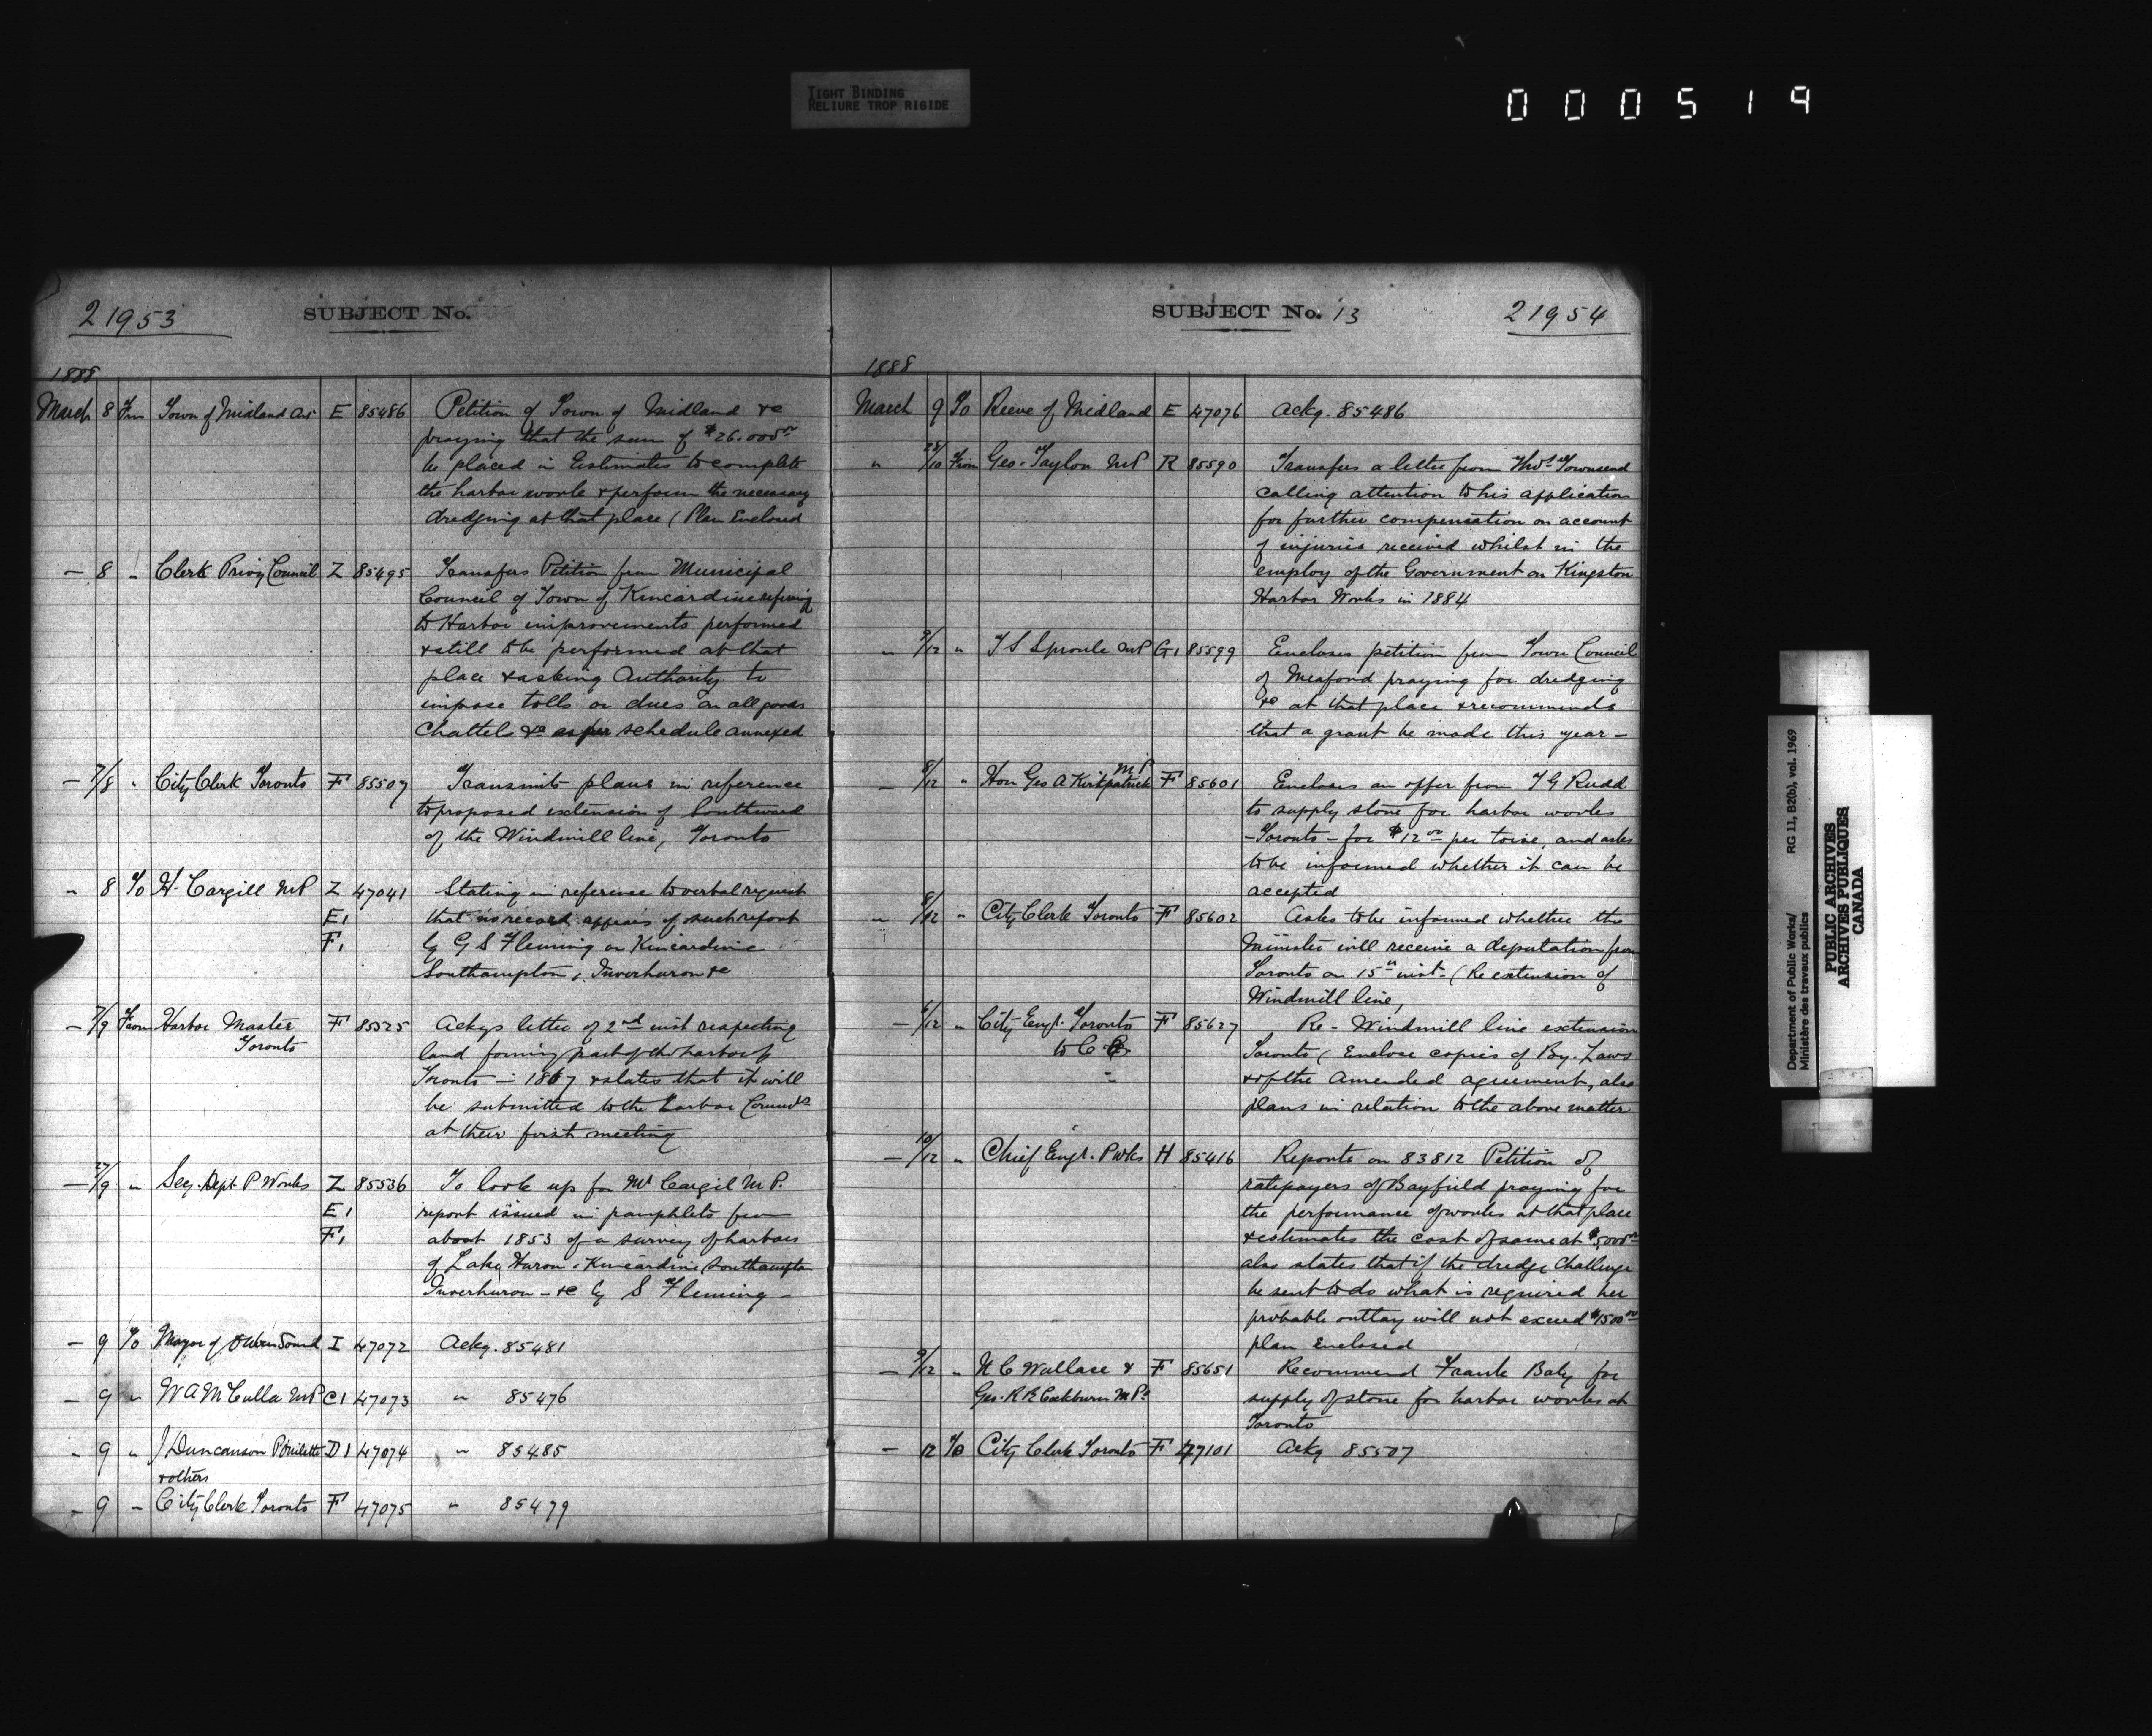 TIGHT BINDING
RELIURE TROP RIGIDE
000519
21953
SUBJECT No.
1888
March 8 Frm Town of Midland Ont E 85486 Petition of Town of Midland &c
praying that the sum of $26.000 00
be placed in Estimates to complete
the harbor work & perform the necessary
dredging at that place (Plan Enclosed
— 8 " Clerk Privy Council Z 85495 Transfers Petition from Municipal
Council of Town of Kincardine refering
to Harbor improvements performed
& still to be performed at that
place & asking Authority to
impose tolls or dues on all goods
Chattels &c as per schedule annexed
— 7/8 " City Clerk Toronto F 85507 Transmits plans in reference
to proposed extension of Southward
of the Windmill line, Toronto
" 8 To H. Cargill MP Z 47041 Stating in reference to verbal request
E1 that no record appears of such report
F1 by G S Fleming on Kincardine
Southampton, Inverhuron &c
— 7/9 From Harbor Master F 85525 Ackgs letter of 2nd inst respecting
Toronto land forming part of the harbor of
Toronto in 1867 & states that it will
be submitted to the Harbor Commrs
at their first meeting
— 27/9 " Secy. Dept P Works Z 85536 To look up for Mr Cargil M P.
E1 report issued in pamphlets from
F1 about 1853 of a survey of harbors
of Lake Huron, Kincardine Southampton
Inverhuron - &c by S Fleming -
— 9 To Mayor of Owen Sound I 47072 Ackg. 85481
— 9 " W A McCulla MP C1 47073 " 85476
" 9 " J Duncanson D1 47074 " 85485
& others
— 9 " City Clerk Toronto F 47075 " 85479
SUBJECT No. 13
21954
1888
March 9 To Reeve of Midland E 47076 Ackg. 85486
" 28/10 From Geo. Taylor MP R 85590 Transfers a letter from Thos Townsend
calling attention to his application
for further compensation on account
of injuries received whilst in the
employ of the Government on Kingston
Harbor Works in 1884
" 9/12 " T S Sproule MP G1 85599 Encloses petition from Town Council
of Meaford praying for dredging
&c at that place & recommends
that a grant be made this year -
— 8/12 " Hon Geo A Kirkpatrick M.P. F 85601 Encloses an offer from T G Rudd
to supply stone for harbor works
- Toronto - for $12 00 per toise, and asks
to be informed whether it can be
accepted
" 8/12 " City Clerk Toronto F 85602 Asks to be informed whether the
Minister will receive a deputation from
Toronto on 15th inst - (Re extension of
Windmill line,
— 6/12 " City Engr. Toronto F 85627 Re - Windmill line extension
to C E Toronto (Enclose copies of By-Laws
" & of the Amended agreement, also
plans in relation to the above matter
— 10/12 " Chief Engr. P Wks H 85416 Reports on 83812 Petition of
ratepayers of Bayfield praying for
the performance of works at that place
& estimates the cost of same at $5,000 00
also states that if the dredge Challenge
be sent to do what is required her
probable outlay will not exceed $1500 00
plan enclosed
— 9/12 " N C Wallace & F 85651 Recommend Frank Baby for
Geo. R R Cockburn M.Ps supply of stone for harbor works at
Toronto
— 12 To City Clerk Toronto F 47101 Ackg 85507
Department of Public Works/ RG 11, B2(b), vol. 1969
Ministère des travaux publics
PUBLIC ARCHIVES
ARCHIVES PUBLIQUES
CANADA